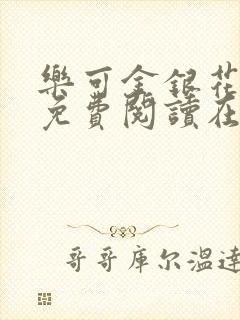 樂可金銀花
免費閱讀在
哥哥库尔温達